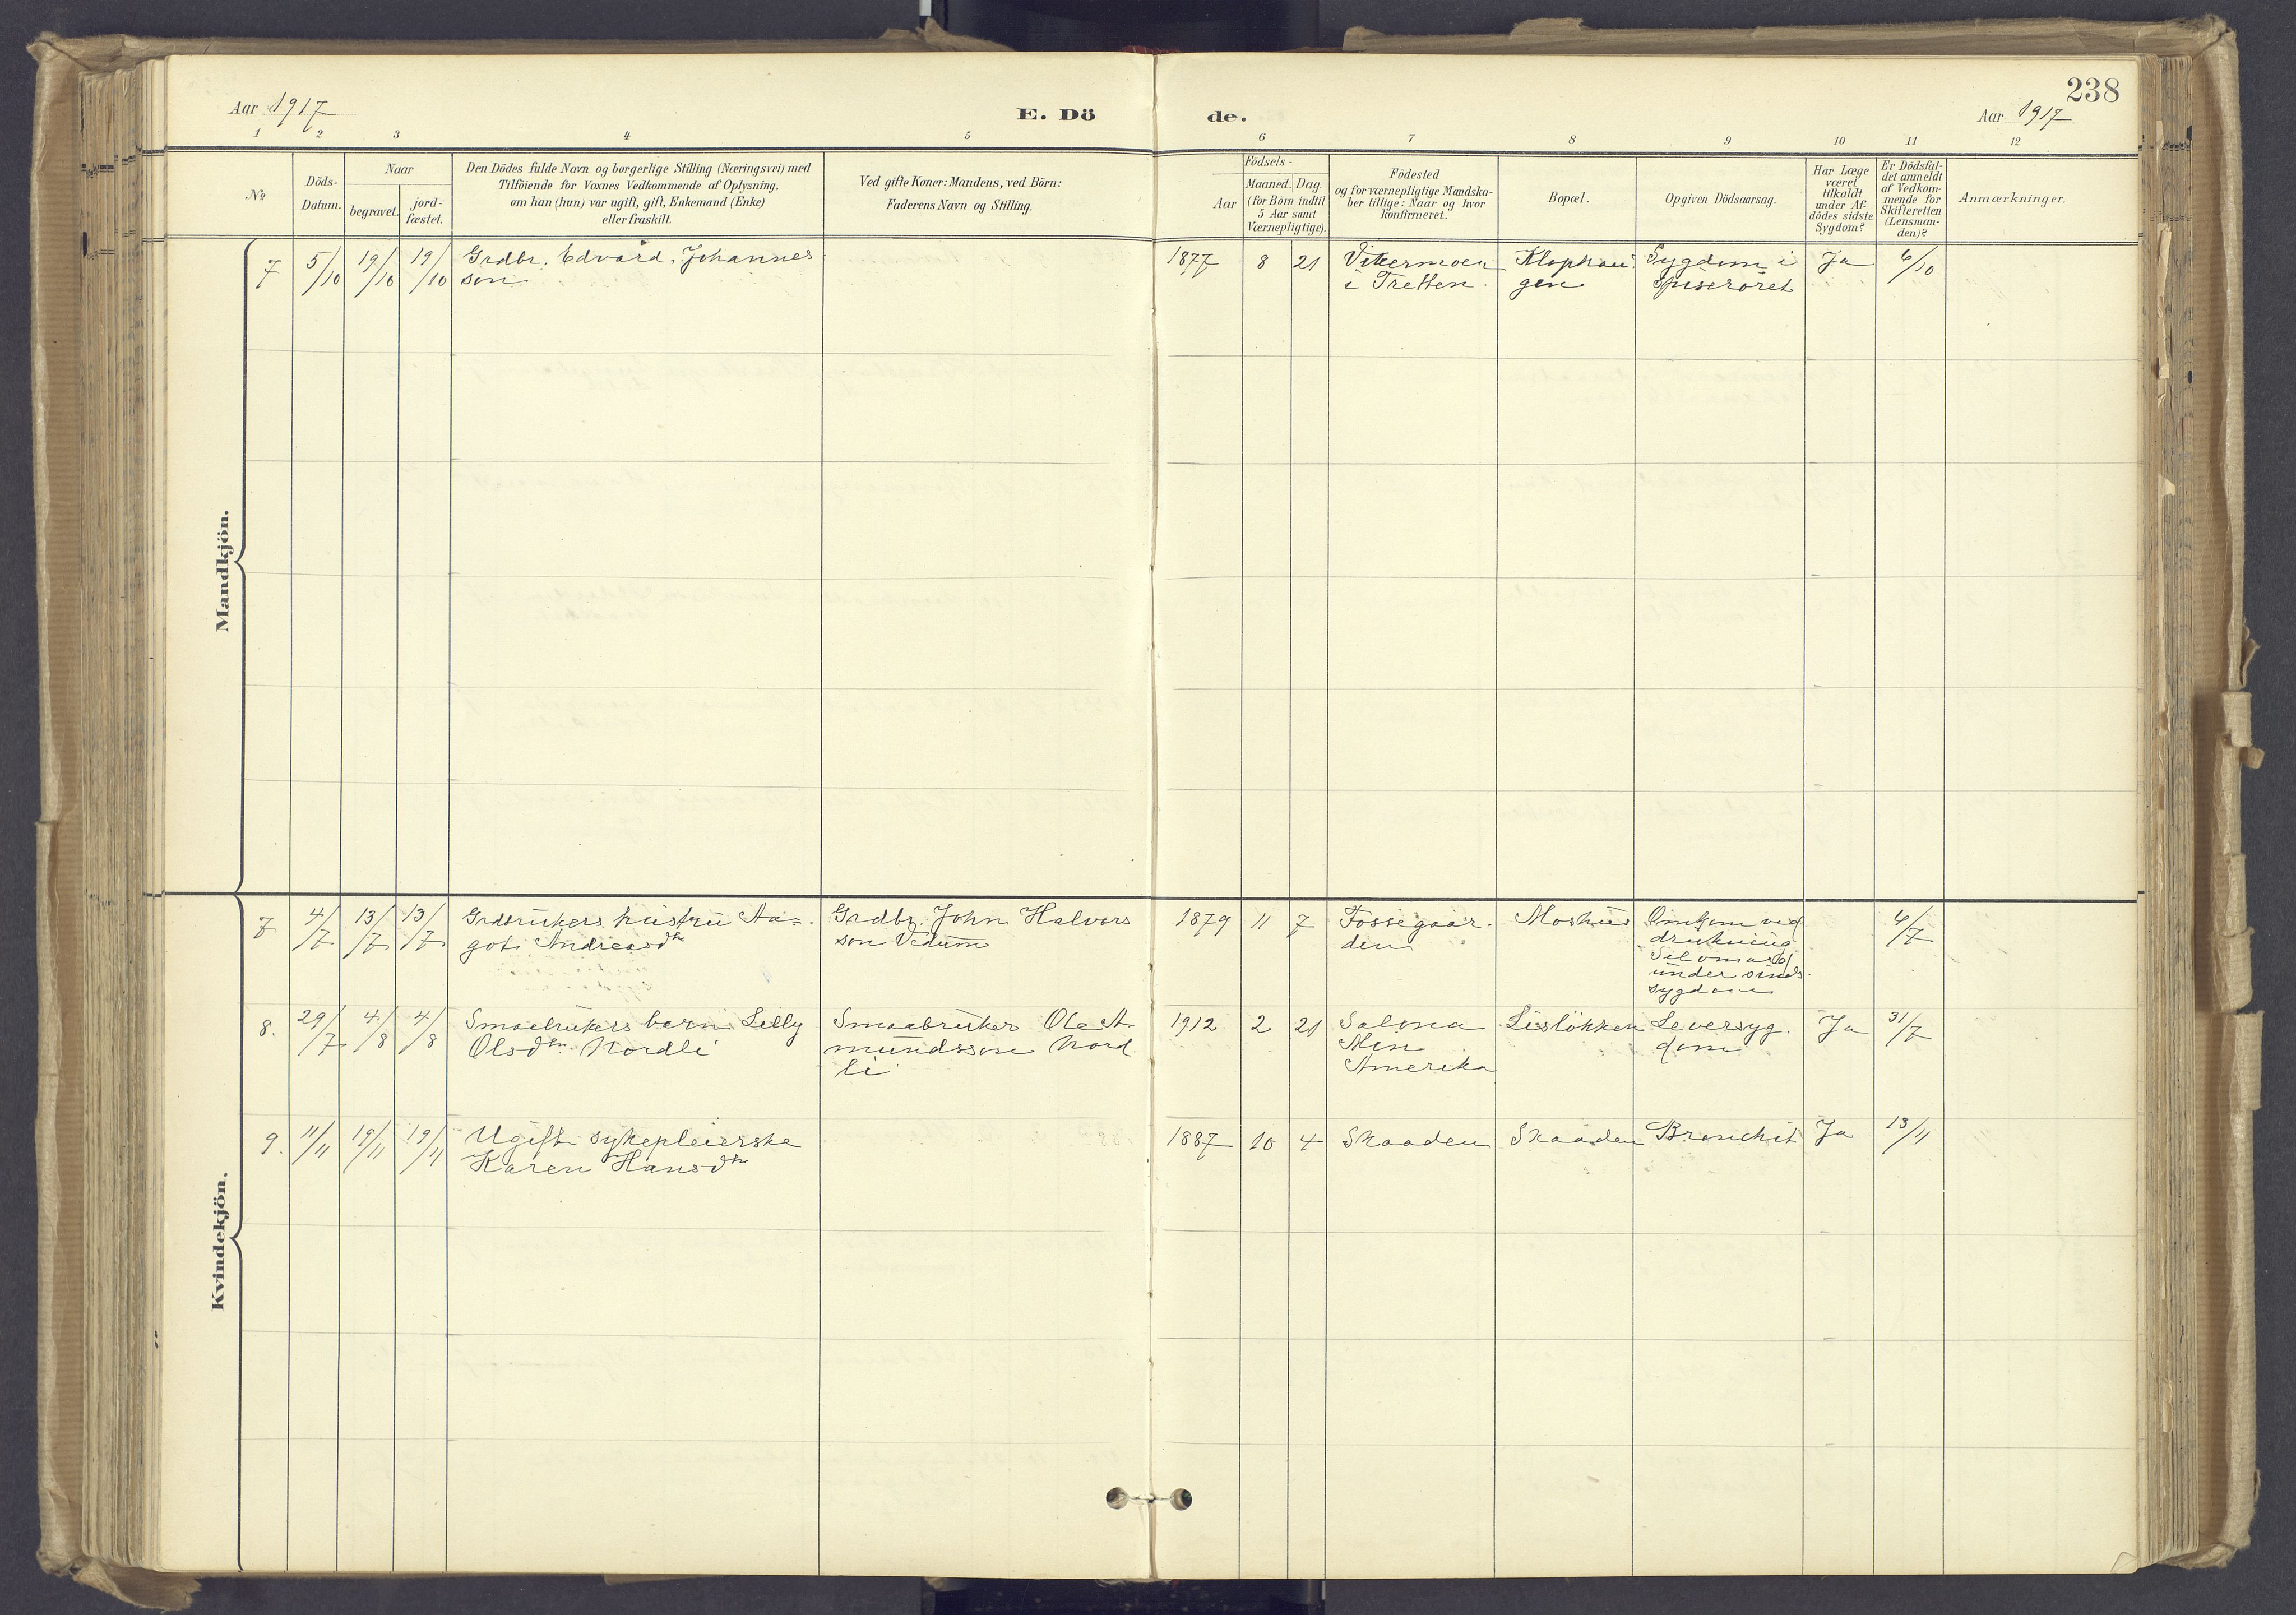 238
Aar 1917
E. Dö
de.
Aar 1917
1 2 3 4 5 6 7 8 9 10 11 12
No
Döds-
Datum.
Naar
begravet.
jord-
fæstet.
Den Dödes fulde Navn og borgerlige Stilling (Næringsvei) med
Tilföiende for Voxnes Vedkommende af Oplysning,
om han (hun) var ugift, gift, Enkemand (Enke)
eller fraskilt.
Ved gifte Koner: Mandens, ved Börn:
Faderens Navn og Stilling.
Födsels-
Aar
Maaned.
Dag
(for Börn indtil
5 Aar samt
Værnepligtige).
Födested
og for værnepligtige Mandska-
ber tillige: Naar og hvor
konfirmeret.
Bopæl.
Opgiven Dödsaarsag.
Har Læge
været
tilkaldt
under Af-
dödes sidste
Sygdom?
Er Dödsfal-
det anmeldt
af Vedkom-
mende for
Skifteretten
(Lensman-
den)?
Anmærkninger.
Mandkjön.
7 5/10 19/10 19/10 Grdbr. Edvard Johannes 1877 8 21 Vikermoen Klophau Sygdom i Ja 6/10
son i Tretten. gen Spiseröret
Kvindekjön.
7 4/7 13/7 13/7 Grdbrukers hustru Aa- Grdbr. John Halvors 1879 11 7 Fossegaar. Moshus Omkom ved 6/7
got Andreasdtr son Vedum den drukning
Selvmord
under sinds
sygdom
8. 29/7 4/8 4/8 Smaabrukers barn Lilly Smaabruker Ole A 1912 2 21 Solona Lislökken Leversyg. Ja 31/7
Olsdtr Nordli mundsson Nord Min dom
li Amerika
9. 11/11 19/11 19/11 Ugift sykepleierske 1887 10 4 Skaaden Skaaden Bronchit Ja 13/11
Karen Hansdtr